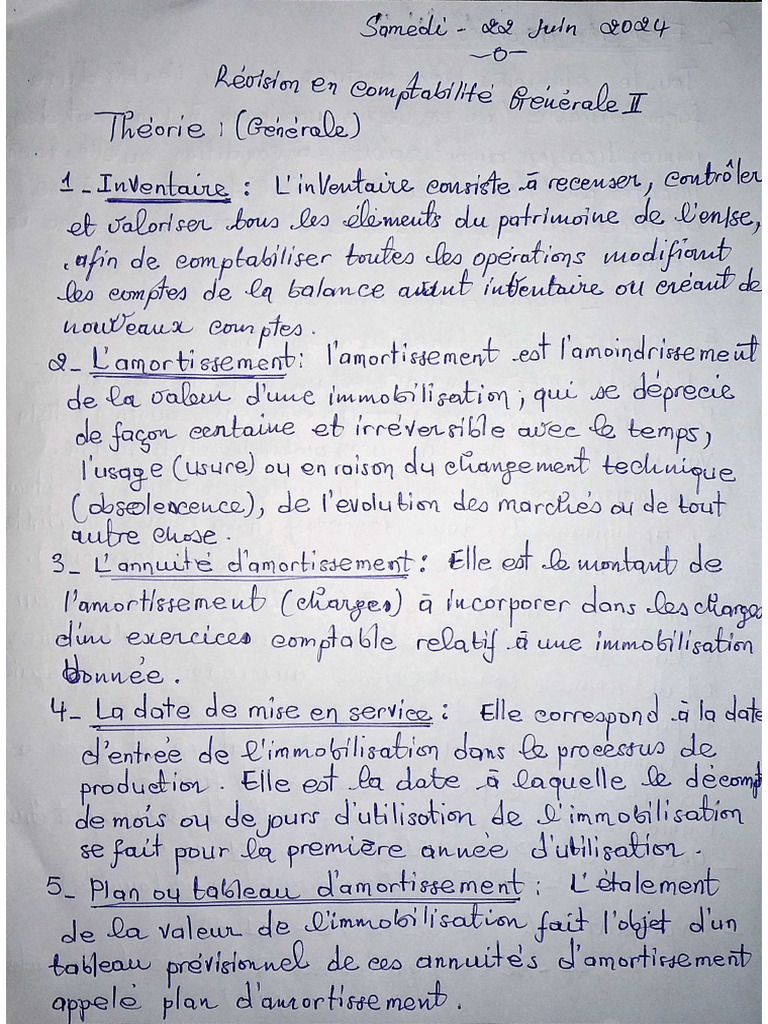 Samedi - 22 Juin 2024
-0-
Révision en comptabilité Générale II
Théorie : (Générale)
1_ Inventaire : L'inventaire consiste à recenser, contrôler
et valoriser tous les éléments du patrimoine de l'en/se,
afin de comptabiliser toutes les opérations modifiant
les comptes de la balance avant inventaire ou créant de
nouveaux comptes.
2_ L'amortissement : l'amortissement est l'amoindrissement
de la valeur d'une immobilisation, qui se déprecie
de façon certaine et irréversible avec le temps,
l'usage (usure) ou en raison du changement technique
(obselescence), de l'evolution des marchés ou de tout
autre chose.
3_ L'annuité d'amortissement : Elle est le montant de
l'amortissement (charges) à incorporer dans les charges
d'un exercices comptable relatif à une immobilisation
donnée.
4_ La date de mise en service : Elle correspond à la date
d'entrée de l'immobilisation dans le processus de
production. Elle est la date à laquelle le décompt
de mois ou de jours d'utilisation de l'immobilisation
se fait pour la première année d'utilisation.
5_ Plan ou tableau d'amortissement : L'étalement
de la valeur de l'immobilisation fait l'objet d'un
tableau prévisionnel de ces annuités d'amortissement
appelé plan d'amortissement.